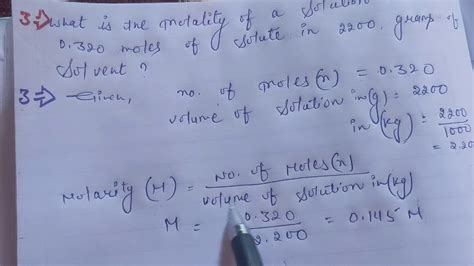 3⇒ What is the molality of a solution
0.320 moles of solute in 2200. grams of
Solvent?
3⇒ Given, no. of moles(n) = 0.320
volume of solution in(g) = 2200
in(kg) = 2200/1000
= 2.20
Molarity (M) = No. of Moles(n)/volume of solution in(kg)
M = 0.320/2.200 = 0.145 M